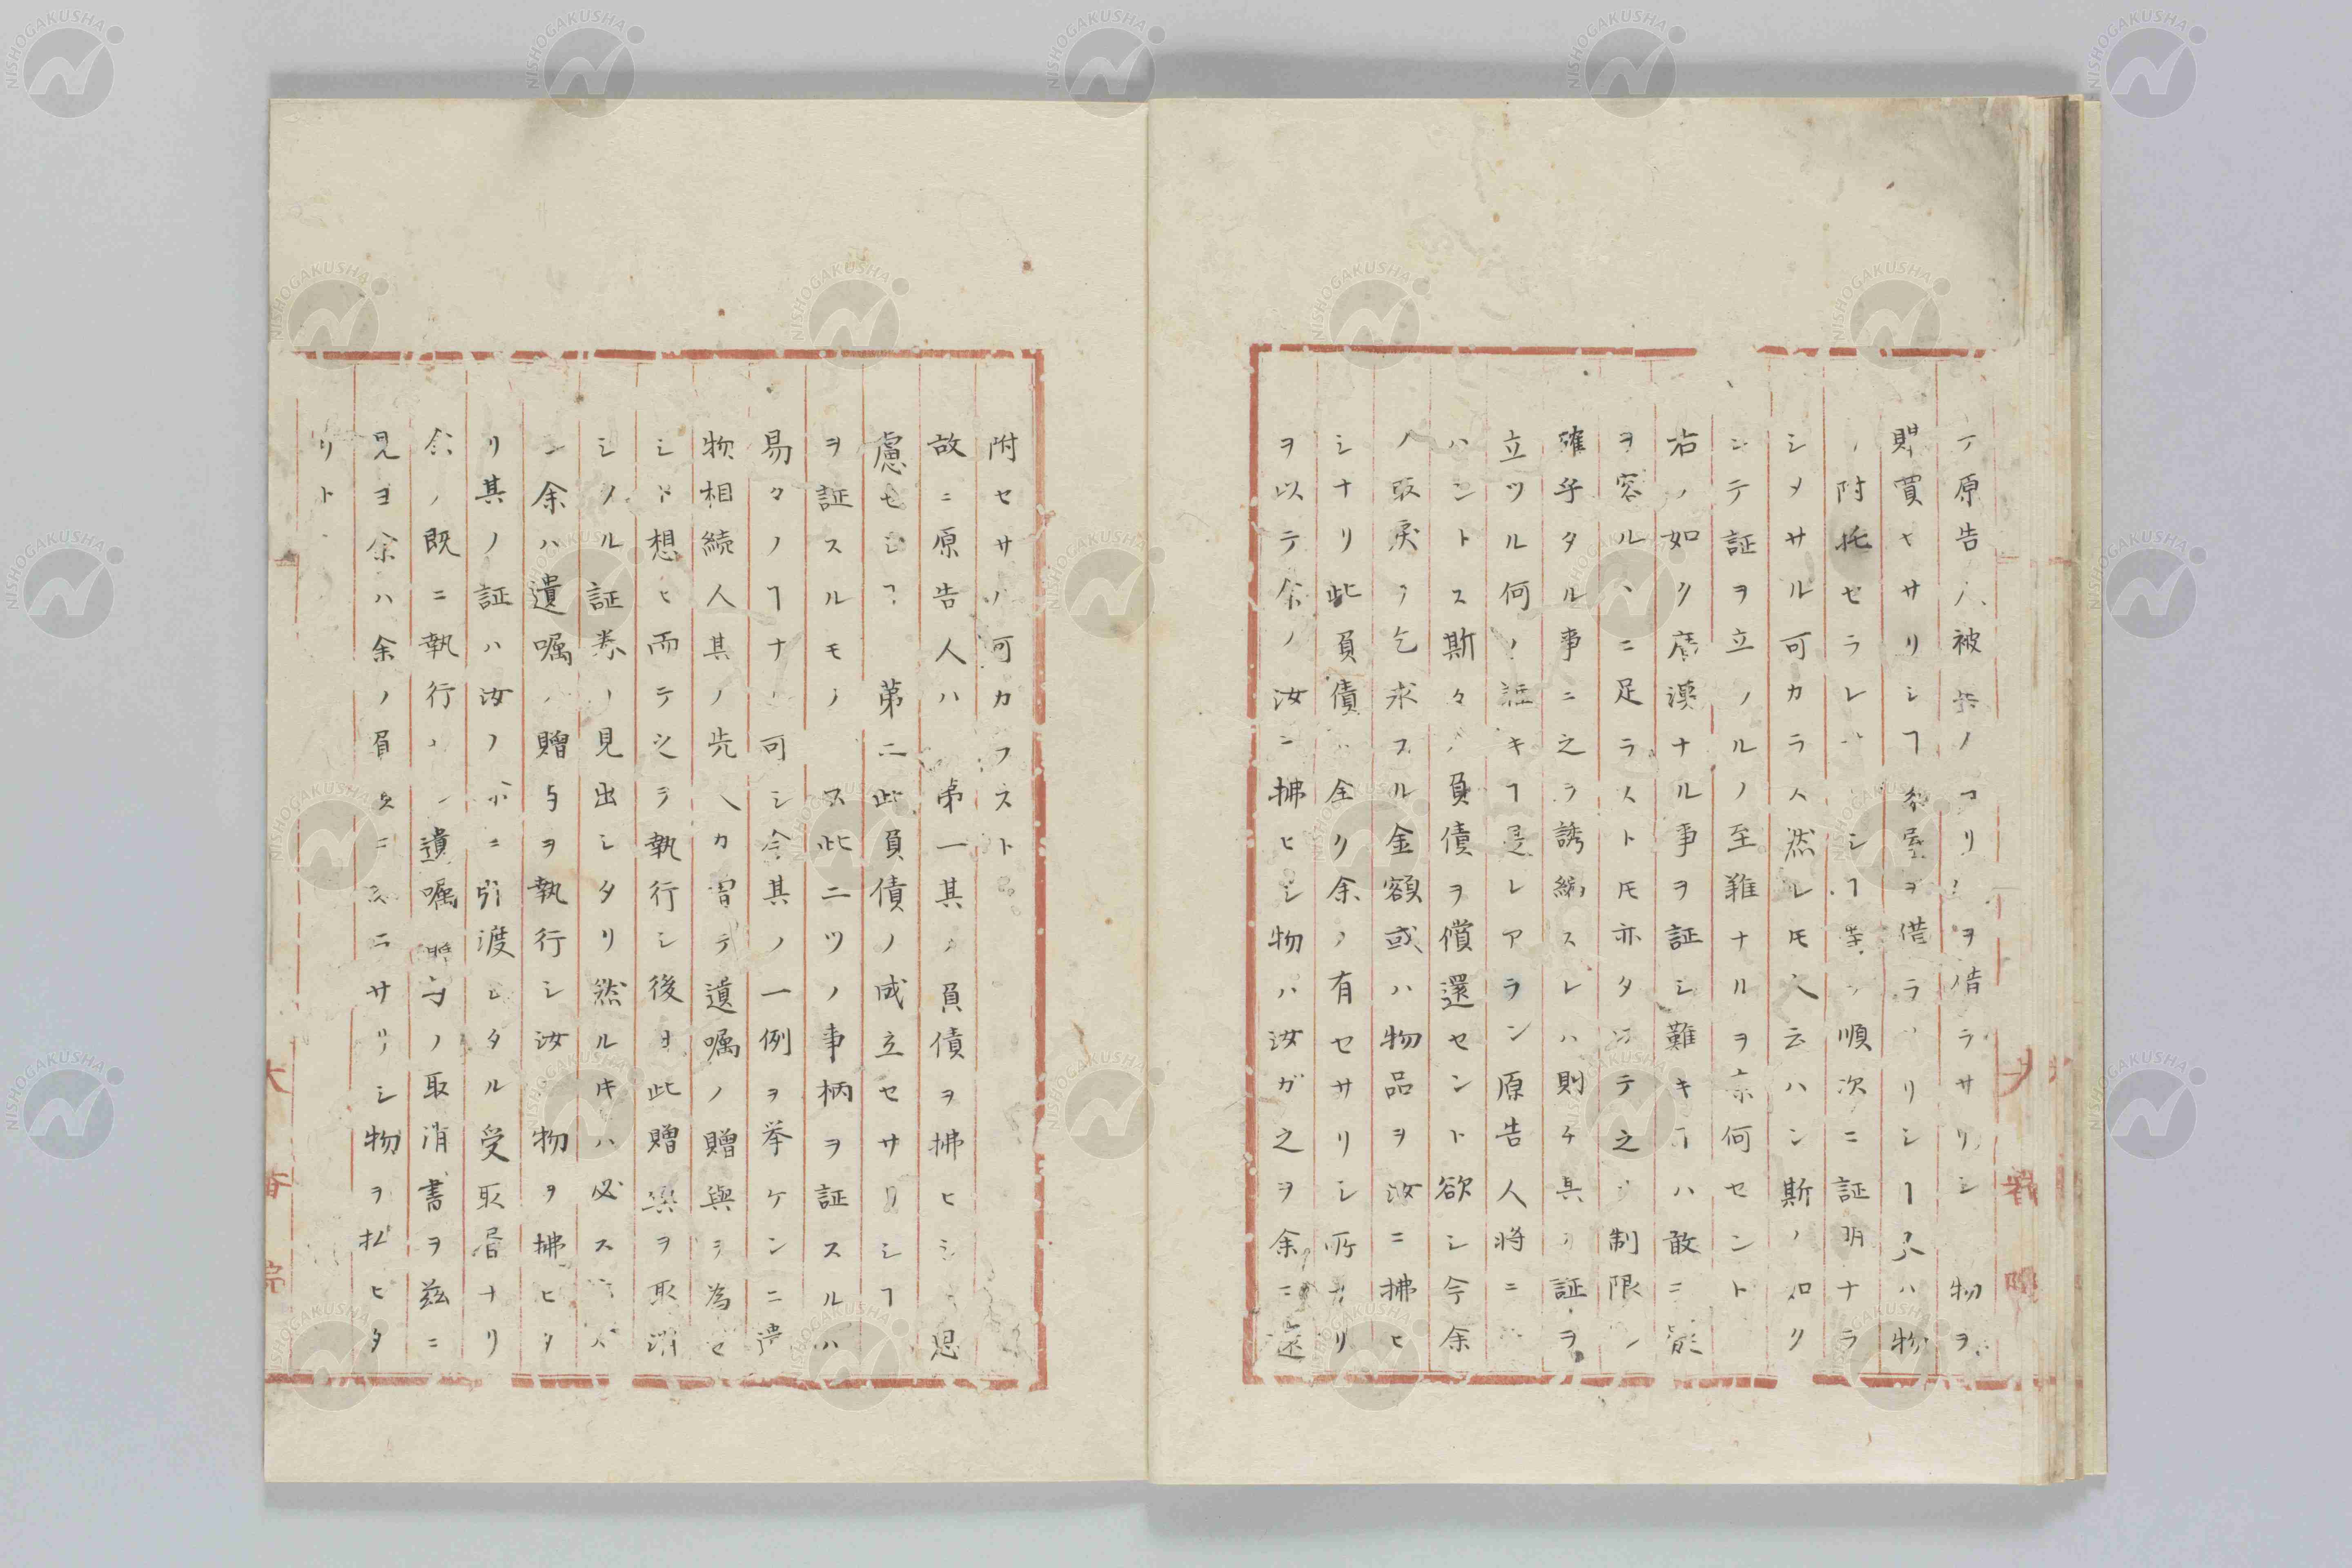 テ原告ハ被告ノコリヲ借ラサリシ物ヲ
買ヒサリシヿ家屋ヲ借ラサリシヿ又ハ物
ノ附托セラレサリシヿ等ヲ順次ニ証明ナラ
シメサル可カラス然レ𪜈人云ハン斯ノ如ク
シテ証ヲ立ツルノ至難ナルヲ奈何セント
右ノ如ク広漠ナル事ヲ証シ難キヿハ敢ニ疑
ヲ容ルヽニ足ラスト𪜈亦タ以テ之ヲ制限シ
確乎タル事ニ之ヲ誘縮スレハ則チ其ノ証ヲ
立ツル何ノ証キヿ是レアラン原告人将ニ
ハントス斯々ノ負債ヲ償還セント欲シ今余
ノ取戻ヲ乞求スル金額或ハ物品ヲ汝ニ拂ヒ
シナリ此負債ハ全ク余ノ有セサリシ所ナリ
ヲ以テ余ノ汝ニ拂ヒシ物ハ汝ガ之ヲ余ニ還
附セサル可カラスト
故ニ原告人ハ 第一其ノ負債ヲ拂ヒシヿ思
慮セシヿ 第二此負債ノ成立セサリシヿ
ヲ証スルモノ 又此二ツノ事柄ヲ証スルハ
易々ノヿナル可シ今其ノ一例ヲ挙ケンニ遺
物相続人其ノ先人カ曽テ遺嘱ノ贈與ヲ為セ
シト想ヒ而テ之ヲ執行シ後ヨ此贈與ヲ取消
シタル証券ノ見出シタリ然ル𬼀ハ必ス
ン余ハ遺嘱ノ贈与ヲ執行シ汝ニ物ヲ拂ヒタ
リ其ノ証ハ汝ノ余ニ引渡シタル受取書ナリ
余ノ既ニ執行シ遺嘱贈与ノ取消書ヲ茲ニ
見ヨ余ハ余ノ負タニサリシ物ヲ払ヒタ
リト